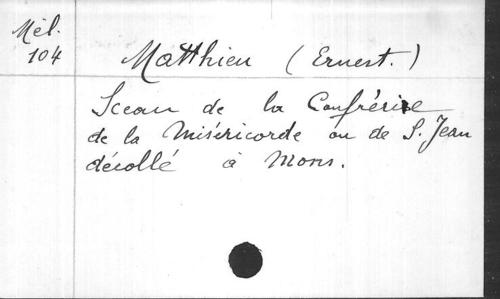 Mél.
104
Matthieu (Ernest.)
Sceau de la Confrérie
de la Miséricorde ou de S. Jean
décollé à Mons.